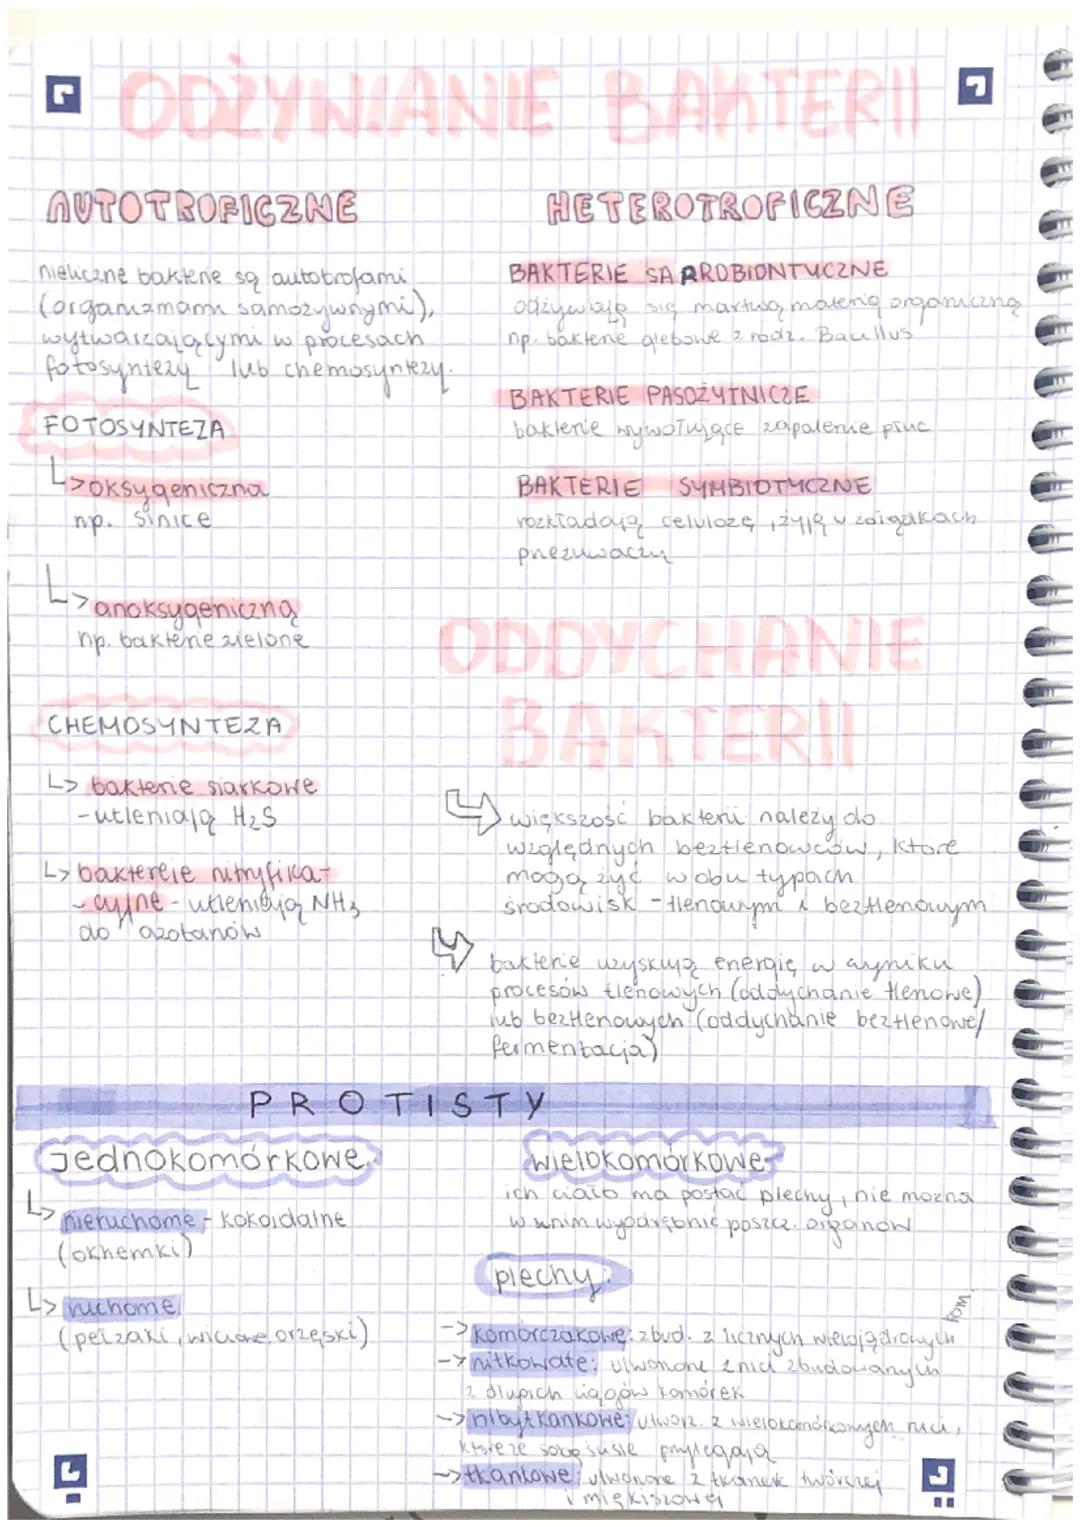 ODŻYWIANIE BAKTERII
AUTOTROFICZNE
nieliczne bakterie są autotrofami
(organizmami samożywnymi),
wytwarzającymi w procesach
fotosyntezy lub chemosyntezy.
FOTOSYNTEZA
↳oksygeniczna
np. sinice
↳anoksygeniczną
np. bakterie zielone
CHEMOSYNTEZA
↳ bakterie siarkowe
-utleniają H₂S
↳ baktereie nitryfika-
- cyjne - utleniają NH₃
do azotanów
HETEROTROFICZNE
BAKTERIE SAPROBIONTYCZNE
odżywiają się martwą materią organiczną
np. bakterie glebowe z rodz. Bacillus
BAKTERIE PASOŻYTNICZE
bakterie wywołujące zapalenie płuc
BAKTERIE SYMBIOTYCZNE
rozkładają celulozę, żyją w żołądkach
przeżuwaczy
ODDYCHANIE
BAKTERII
większość bakterii należy do
względnych beztlenowców, które
mogą żyć w obu typach
środowisk - tlenowym i beztlenowym
bakterie uzyskują energię w wyniku
procesów tlenowych (oddychanie tlenowe)
lub beztlenowych (oddychanie beztlenowe/
fermentacja)
PROTISTY
Jednokomórkowe
↳ nieruchome - kokoidalne
(okrzemki)
↳ ruchome
(pełzaki, wiciowe, orzęski)
wielokomórkowe
ich ciało ma postać plechy, nie można
w nim wyodrębnić poszcz. organów
plechy:
kom.
-> komórczakowe: zbud. z licznych wielojądrowych
-> nitkowate: utworzone z nici zbudowanych
z długich ciągów komórek
-> nibytkankowe: utworz. z wielokomórkowych nici,
które ze sobą ściśle przylegają
-> tkankowe: utworzone z tkanek twórczej
i miękiszowej